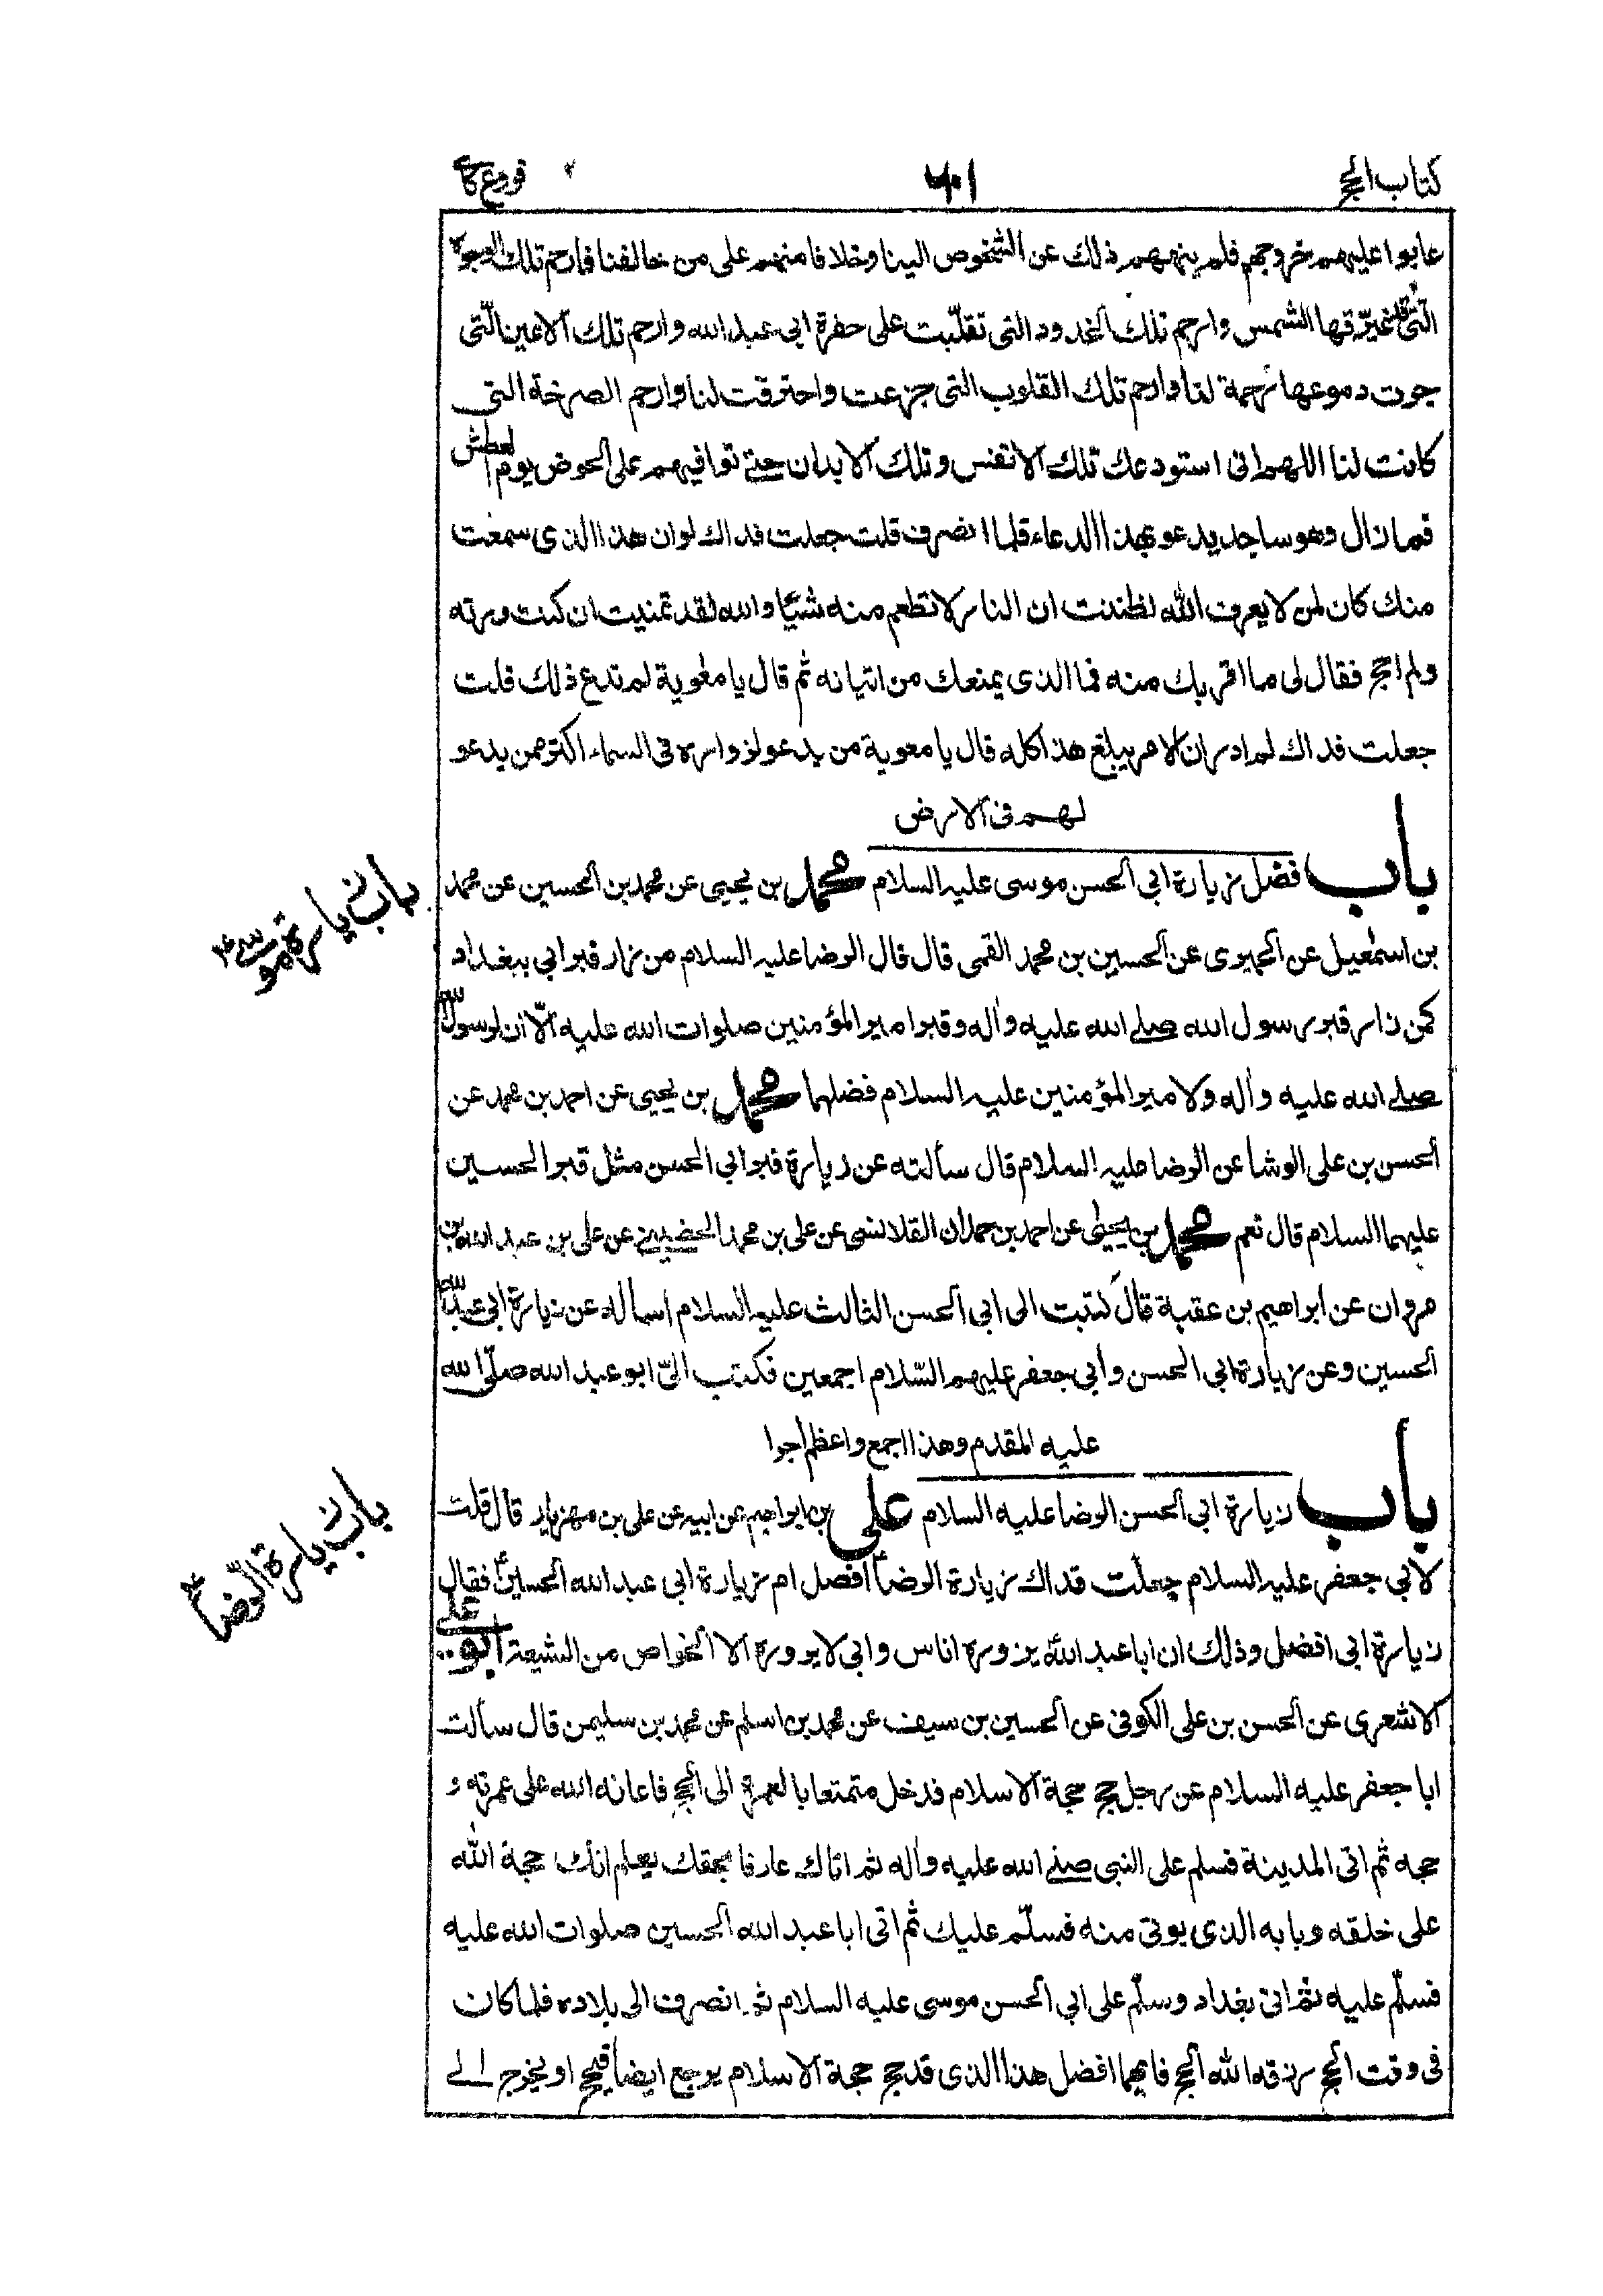 كتاب الحج ٦٠١ فروع كا
عابوا عليهم خروجهم فلم ينههم ذلك عن الشخوص الينا وخلافا منهم على من خالفنا فارحم تلك الوجوه
التى قد غيرتها الشمس وارحم تلك الخدود التى تقلّبت على حفرة ابى عبد الله وارحم تلك الاعين الّتى
جرت دموعها رحمة لنا وارحم تلك القلوب التى جزعت واحترقت لنا وارحم الصرخة التى
كانت لنا اللهم انى استودعك تلك الانفس وتلك الابدان حتى توافيهم على الحوض يوم العطش
فما زال وهو ساجد يدعو بهذا الدعاء فلما انصرف قلت جعلت فداك لو ان هذا الذى سمعت
منك كان لمن لا يعرف الله لظننت ان النار لا تطعم منه شيئا والله لقد تمنيت ان كنت زرته
ولم احج فقال لى ما اقربك منه فما الذى يمنعك من اتيانه ثم قال يا معوية لم تدع ذلك قلت
جعلت فداك لم ادر ان الامر يبلغ هذا كله قال يا معوية من يدعو لزواره فى السماء اكثر ممن يدعو
لهم فى الارض
باب فضل زيارة ابى الحسن موسى عليه السلام محمد بن يحيى عن محمد بن الحسين عن محمد
باب زيارة موسى ع
بن اسمعيل عن الحميرى عن الحسين بن محمد القمى قال قال الرضا عليه السلام من زار قبر ابى ببغداد
كمن زار قبر رسول الله صلى الله عليه واله وقبر امير المؤمنين صلوات الله عليه الّا ان لرسول الله
صلى الله عليه واله ولامير المؤمنين عليه السلام فضلهما محمد بن يحيى عن احمد بن محمد عن
الحسن بن على الوشا عن الرضا عليه السلام قال سألته عن زيارة قبر ابى الحسن مثل قبر الحسين
عليهما السلام قال نعم محمد بن يحيى عن احمد بن حمدان القلانسى عن على بن محمد الحضينى عن على بن عبد الله بن
مروان عن ابراهيم بن عقبة قال كتبت الى ابى الحسن الثالث عليه السلام اسأله عن زيارة ابى عبد الله
الحسين وعن زيارة ابى الحسن وأبى جعفر عليهم السّلام اجمعين فكتب الىّ ابو عبد الله صلّى الله
عليه المقدم وهذا اجمع واعظم اجرا
باب زيارة ابى الحسن الرضا عليه السلام على بن ابراهيم عن ابيه عن على بن مهزيار قال قلت
باب زيارة الرّضا ع
لابى جعفر عليه السلام جعلت فداك زيارة الرضا ع افضل ام زيارة ابى عبد الله الحسين ع فقال
زيارة ابى افضل وذلك ان ابا عبد الله يزوره اناس وابى لا يزوره الا الخواص من الشيعة ابو على
الاشعرى عن الحسن بن على الكوفى عن الحسين بن سيف عن محمد بن اسلم عن محمد بن سليمن قال سألت
ابا جعفر عليه السلام عن رجل حج حجة الاسلام فدخل متمتعا بالعمرة الى الحج فاعانه الله على عمرته و
حجه ثم اتى المدينة فسلم على النبى صلى الله عليه واله ثم اتاك عارفا بحقك يعلم انك حجة الله
على خلقه وبابه الذى يوتى منه فسلّم عليك ثم اتى ابا عبد الله الحسين صلوات الله عليه
فسلّم عليه ثم اتى بغداد وسلّم على ابى الحسن موسى عليه السلام ثم انصرف الى بلاده فلما كان
فى وقت الحج رزقه الله الحج فايهما افضل هذا الذى قد حج حجة الاسلام يرجع ايضا فيحج او يخرج الى